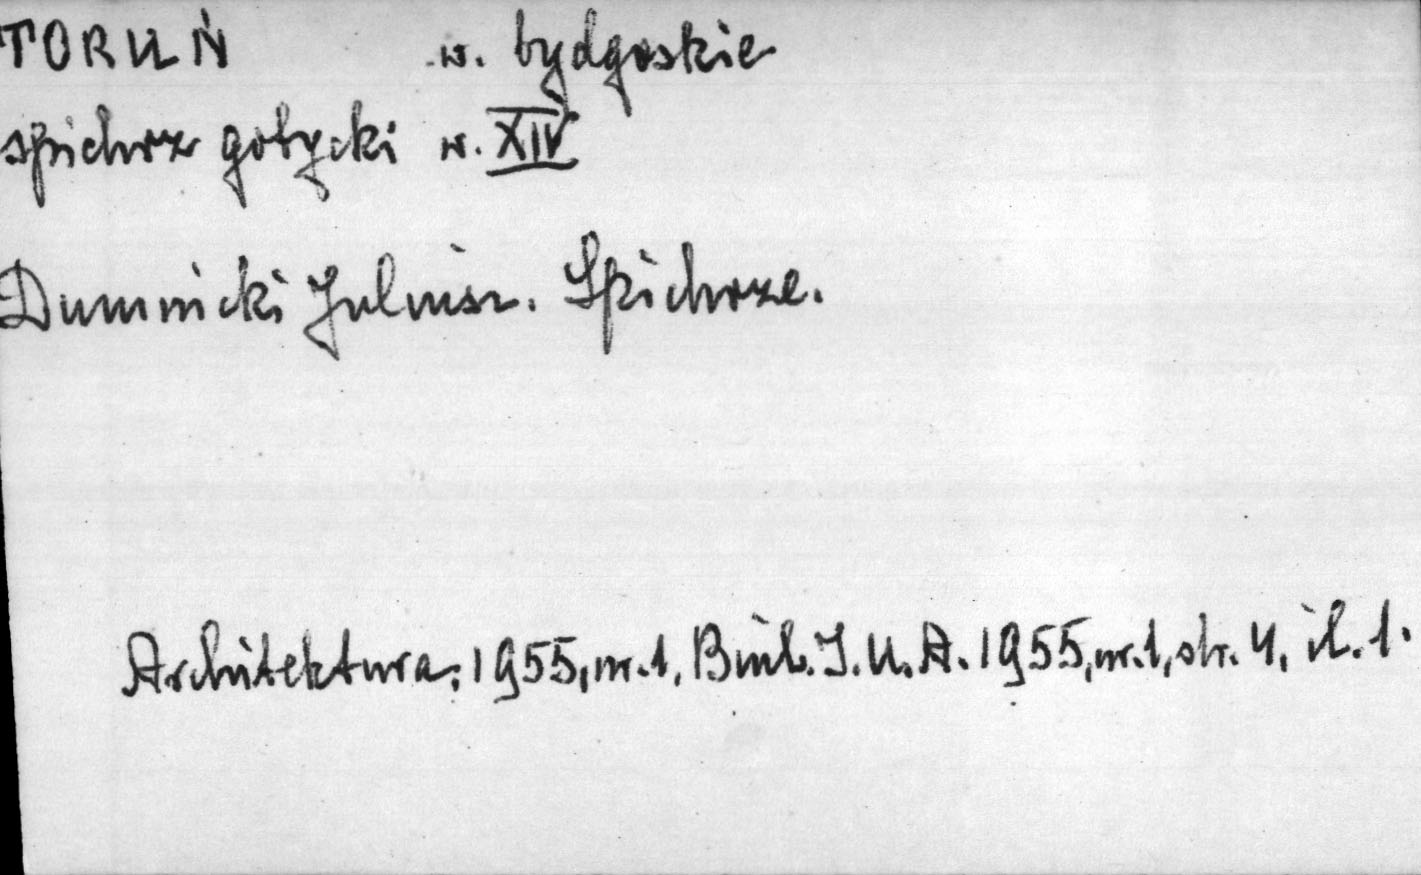 TORUŃ w. bydgoskie
spichrz gotycki w. XIV
Dumnicki Juliusz. Spichrze.
Architektura, 1955, nr. 1, Biul. I. U. A. 1955, nr. 1, str. 4, il. 1.